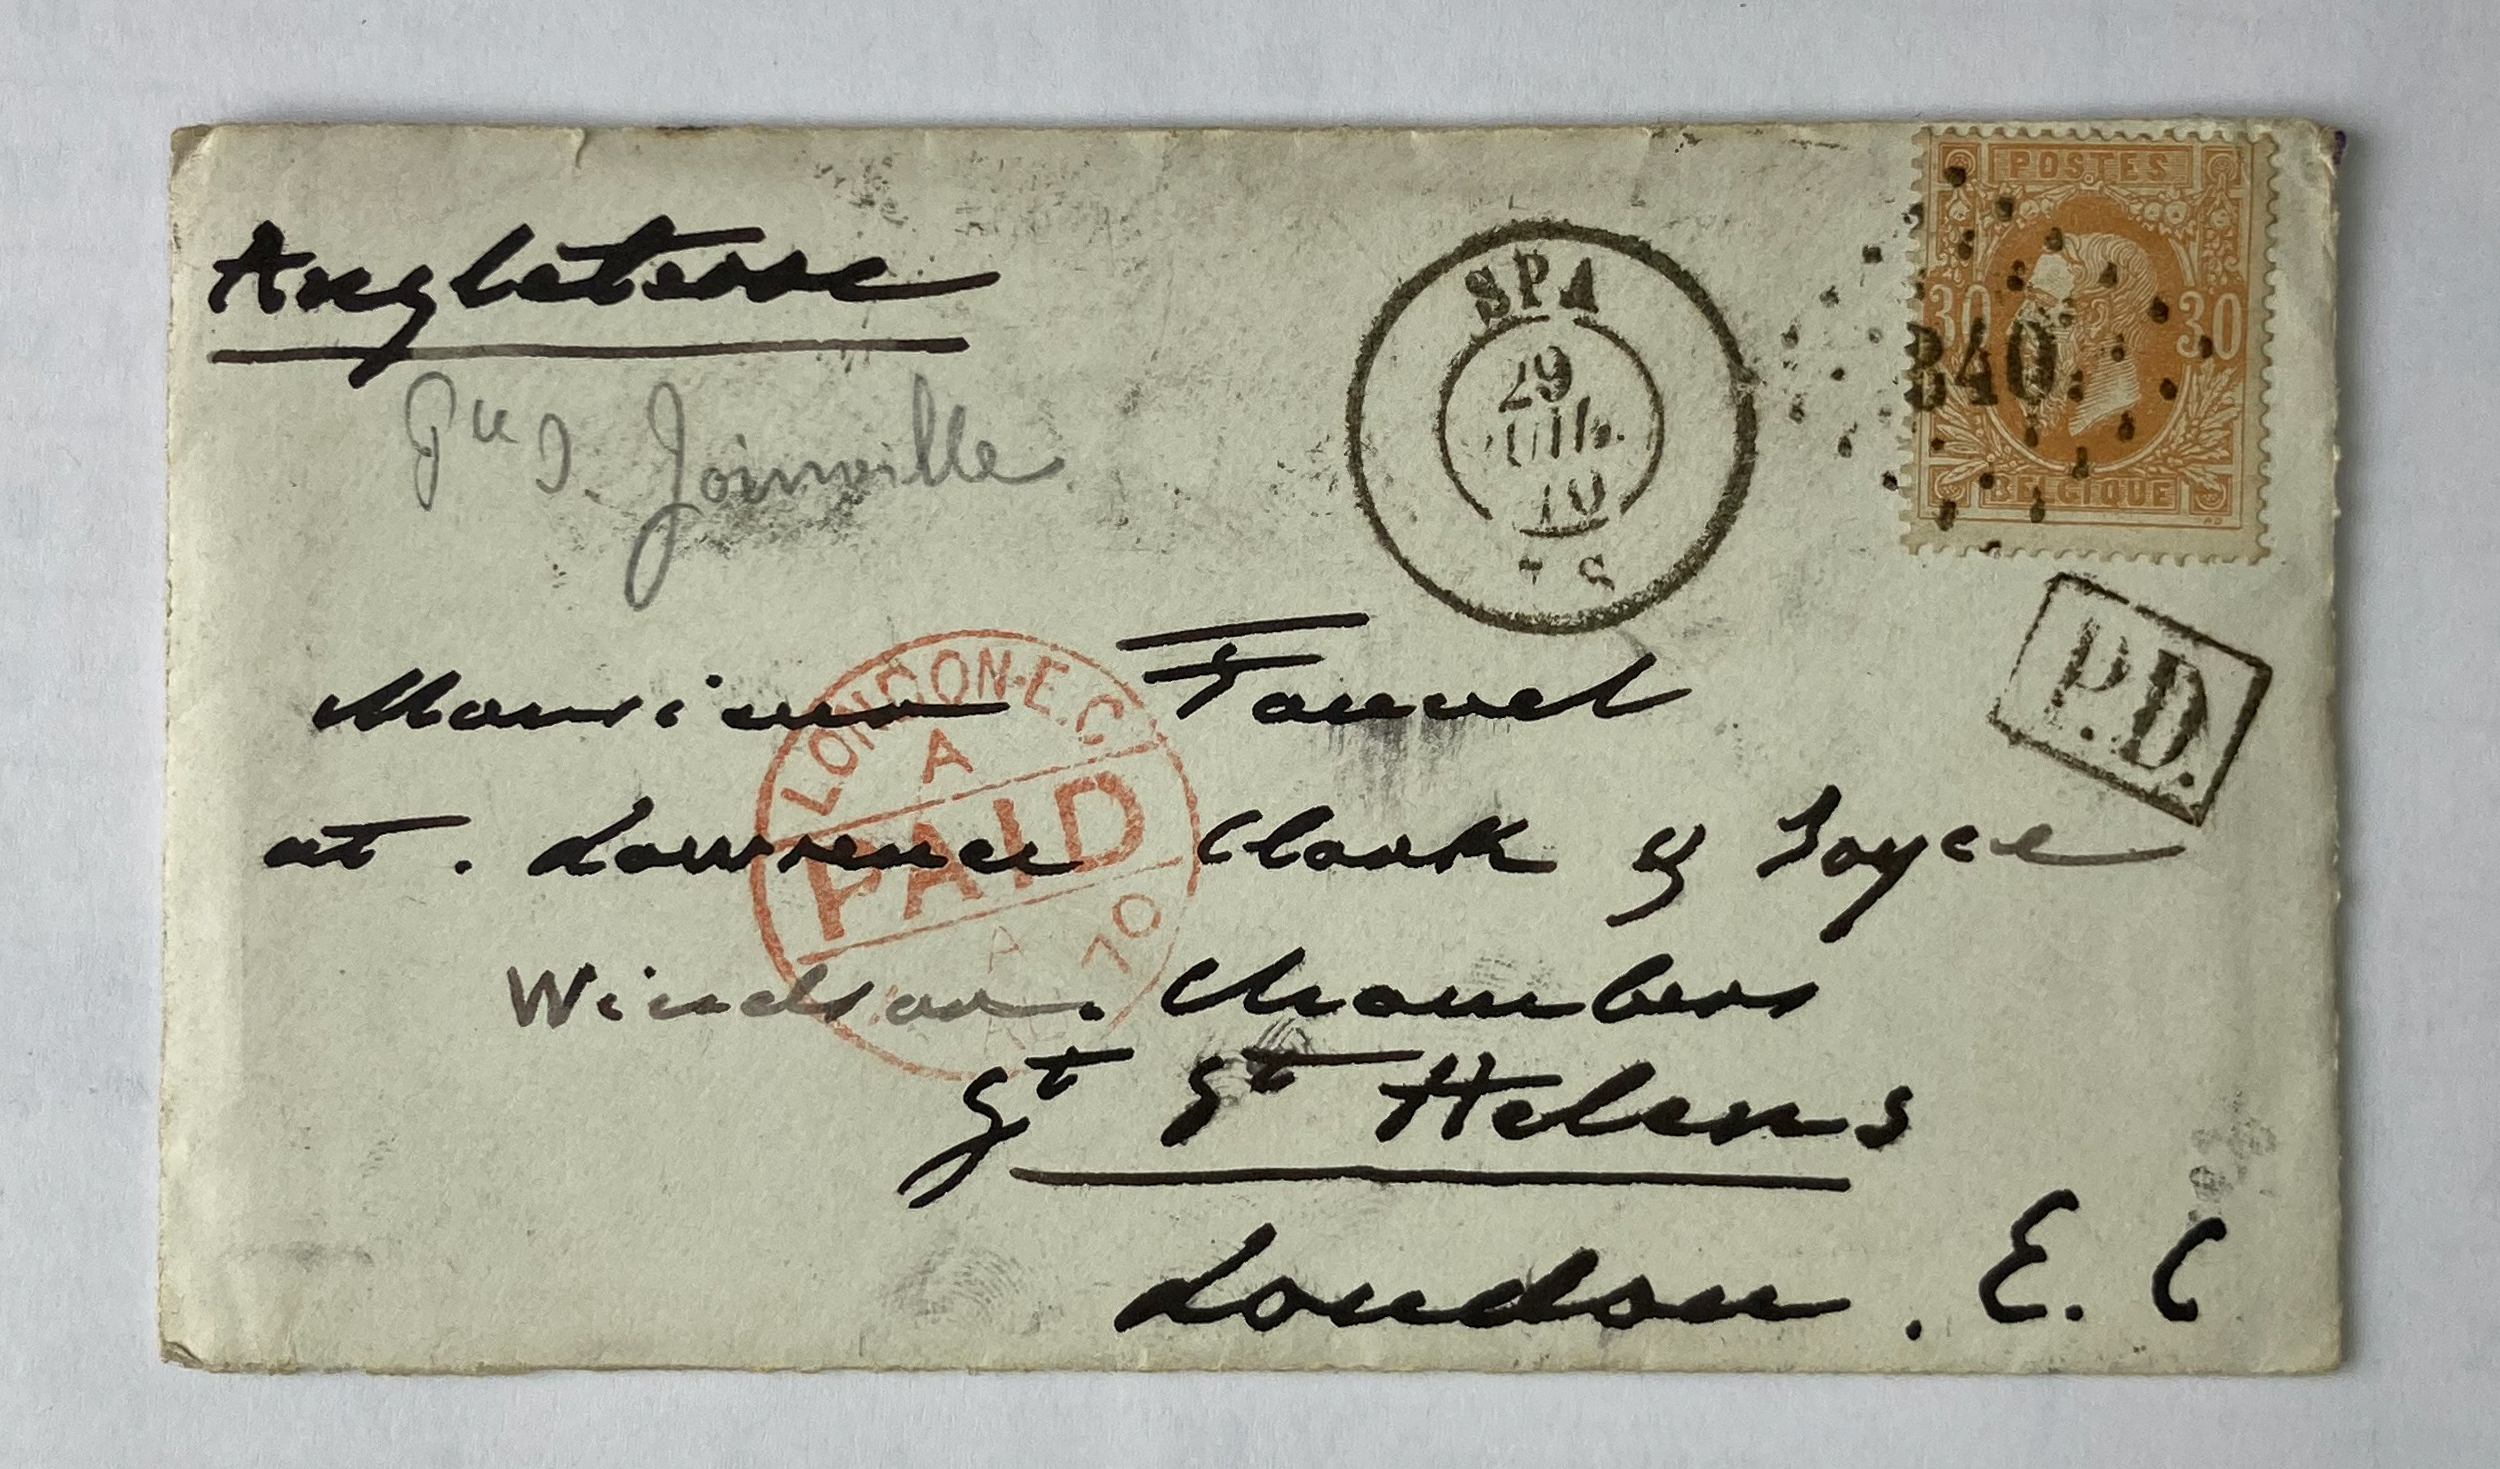 POSTES
30 30
340
BELGIQUE
SPA
29
JUIL.
70
7 S
P.D.
Angleterre
Pce d. Joinville
LONDON-E.C
A
PAID
70
Monsieur Fauvel
at. Lawrence Clark & Joyce
Windsor. Chambers
Gt St Helens
London. E. C